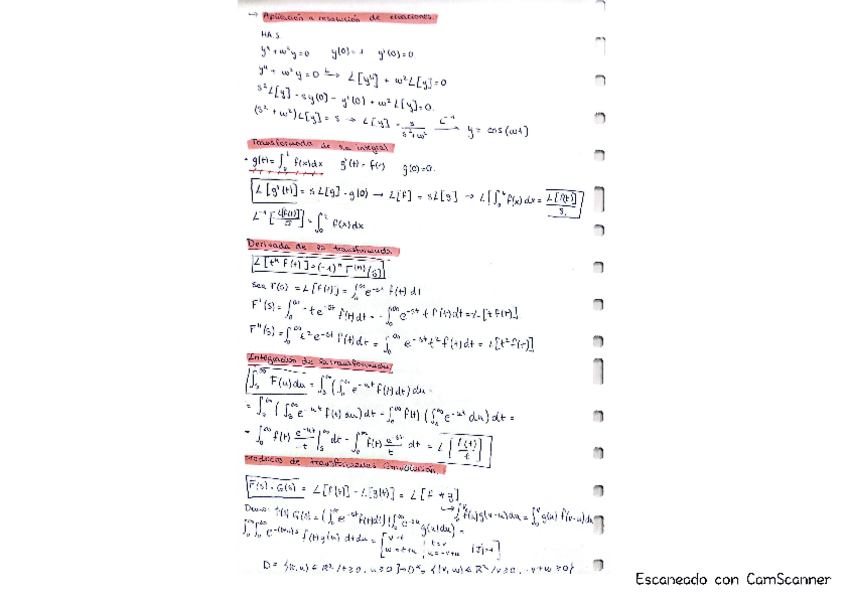 → Aplicación a resolución de ecuaciones.
H.A.S.
y'' + w²y = 0 y(0) = 1 y'(0) = 0
y'' + w²y = 0 →^L L[y''] + w²L[y] = 0
s²L[y] - sy(0) - y'(0) + w²L[y] = 0.
(s² + w²)L[y] = s → L[y] = s/(s²+w²) →^{L⁻¹} y = cos(wt)
Transformada de la integral
· g(t) = ∫₀ᵗ f(x)dx g'(t) = f(t) g(0) = 0.
L[g'(t)] = sL[g] - g(0) → L[f] = sL[g] → L[∫₀ᵗ f(x)dx] = L[f(t)]/s
L⁻¹[L[f(t)]/s] = ∫₀ᵗ f(x)dx
Derivada de la transformada
L[tⁿ f(t)] = (-1)ⁿ F⁽ⁿ⁾(s)
sea F(s) = L[f(t)] = ∫₀^∞ e^{-st} f(t) dt
F'(s) = ∫₀^∞ -te^{-st} f(t)dt = -∫₀^∞ e^{-st} t f(t)dt = -L[t f(t)]
F''(s) = ∫₀^∞ t² e^{-st} f(t)dt = ∫₀^∞ e^{-st} t² f(t)dt = L[t² f(t)]
Integración de la transformada
∫ₛ^∞ F(u)du = ∫ₛ^∞ (∫₀^∞ e^{-ut} f(t)dt) du =
= ∫₀^∞ (∫ₛ^∞ e^{-ut} f(t) du) dt = ∫₀^∞ f(t) (∫ₛ^∞ e^{-ut} du) dt =
= ∫₀^∞ f(t) e^{-ut}/-t |ₛ^∞ dt = ∫₀^∞ f(t) e^{-st}/t dt = L[f(t)/t]
Productos de transformadas Convolución.
F(s) · G(s) = L[f(t)] · L[g(t)] = L[f * g]
↳ ∫₀^v f(u)g(v-u)du = ∫₀^v g(u) f(v-u)du
Demo: F(s) G(s) = (∫₀^∞ e^{-st} f(t)dt) (∫₀^∞ e^{-su} g(u)du) =
∫₀^∞ ∫₀^∞ e^{-(t+u)s} f(t) g(u) dt du =
D = {(t,u) ∈ R² / t ≥ 0, u ≥ 0} → D* = {(v,w) ∈ R² / v ≥ 0, -v+w ≥ 0}
Escaneado con CamScanner